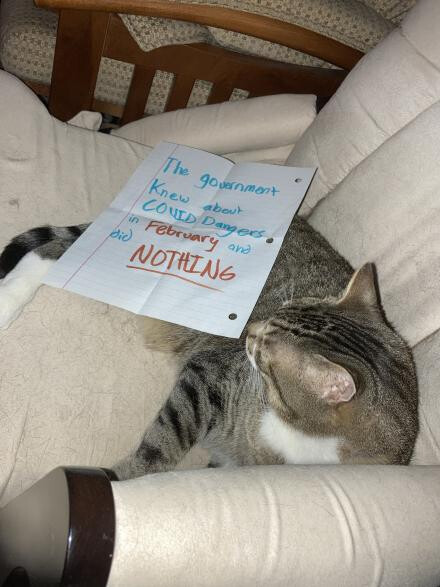 The government
Knew about
COVID Dangers
in February and
did NOTHING